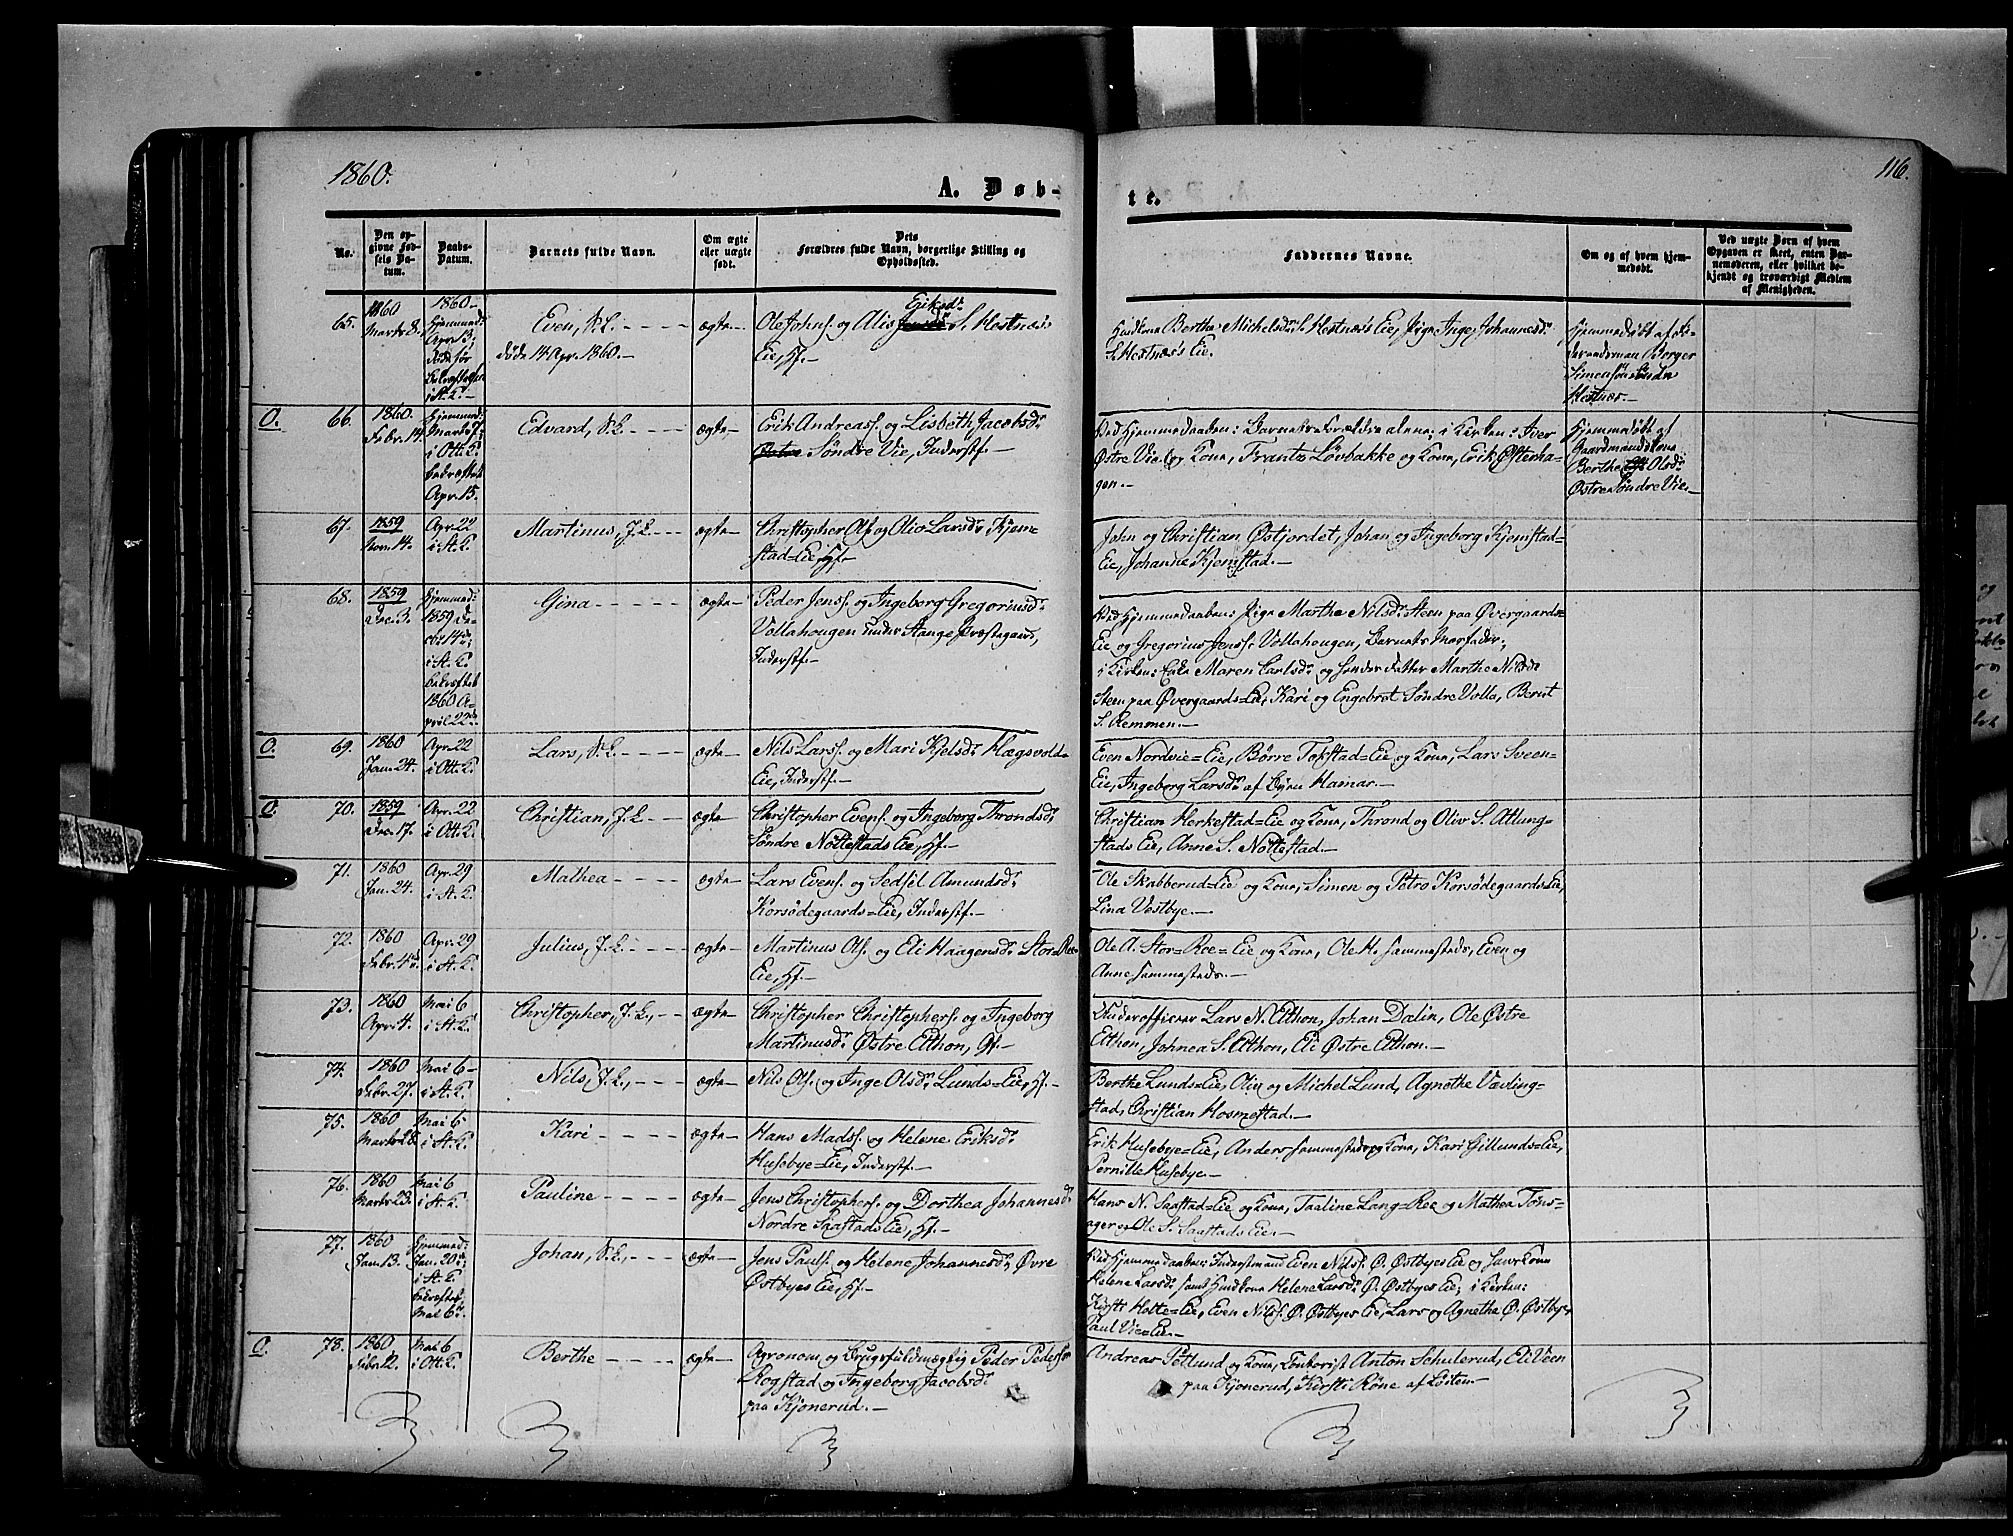 1860.
116.
A. Døb-
te.
No.
Den op-
givne Fød-
sels Da-
tum.
Daabs-
Datum.
Barnets fulde Navn.
Om ægte
eller uægte
født.
Dets
Forældres fulde Navn, borgerlige Stilling og
Opholdssted.
Faddernes Navne.
Om og af hvem hjem-
medøbt.
Ved uægte Børn af hvem
Opgaven er skeet, enten Bar-
nemoderen, eller hvilket be-
kjendt og troværdigt Medlem
af Menigheden.
65.
1860
Marts 8.
1860-
Hjemmed:
Apr. 13.
døde før
Bekræftelsen
i St. K.-
Even,
døde 14 Apr. 1860.-
ægte-
Ole Johns. og Alis Eriksdr. S. Hestnæs's
Eie, Hf.-
Huuskone Berthe Michelsdr. S. Hestnæs's Eie, Pige Inge Johannesdr.
S. Hestnæs's Eie.
Hjemmedøbt af
Børger
Simensøn Søndre
Hestnæs.-
O.
66.
1860.
Febr. 14.
Hjemmed:
Marts 7.
i Ott. K.
bekræftet
Apr. 15.
Edvard,
ægte-
Erik Andreass. og Lisbeth Jacobsdr.
Østre Søndre Vie, Inderstf.-
Ved Hjemmedaaben: Barnets Forældre alene; i Kirken: Iver
Østre Vie og Kone, Frantz Løvbakke og Kone, Erik Østenha-
gen.-
Hjemmedøbt af
Gaardmandskone
Berthe Olsdr.
Østre Søndre Vie.-
67.
1859
Nov. 14.
Apr. 22
i St. K.
Martinus, J. L. -
ægte-
Christopher Ols. og Alis Larsdr. Kjem-
stad=Eie, Hf.-
John og Christian Østjordet, Johan og Ingeborg Kjemstad-
Eie, Johanne Kjemstad.-
68.
1859
Dec. 3.
Hjemmed:
1859 De-
cbr. 14de;
i St. K.
bekræftet
1860 A-
pril 22de
Gina - - - -
ægte-
Peder Jenss. og Ingeborg Gregoriusdr.
Vollahougen under Stange Præstegaard,
Inderstf.-
Ved Hjemmedaaben: Pige Marthe Nilsdr. Steen paa Øvergaards=
Eie og Gregorius Jenss. Vollahougen, Barnets Morfader;
i Kirken: Enke Maren Carlsdr. og hendes Datter Marthe Nilsdr.
Steen paa Øvergaards=Eie, Kari og Engebret Søndre Volla, Bernt
S. Remmen.-
O.
69.
1860
Jan. 24.
Apr. 22
i Ott. K.
Lars,
ægte-
Nils Larss. og Mari Kjelsdr. Hægsvold-
Eie, Inderstf.-
Even Nordvie=Eie, Børre Tokstad=Eie og Kone, Lars Sveen-
Eie, Ingeborg Larsdr. af Byen Hamar.-
O.
70.
1859
Dec. 17.
Apr. 22
i Ott. K.
Christian, J. L. -
ægte-
Christopher Evens. og Ingeborg Throndsdr.
Søndre Nøttestads Eie, Hf.-
Christian Herkestad=Eie og Kone, Thrond og Oliv S. Atlung-
stads Eie, Anne S. Nøttestad.-
71.
1860
Jan. 24.
Apr. 29
i St. K.
Mathea - - - -
ægte-
Lars Evens. og Sedsil Amundsdr.
Korsødegaards=Eie, Inderstf.-
Ole Skabberud=Eie og Kone, Simen og Petro Korsødegaards=Eie,
Lina Vestbye.-
72.
1860
Febr. 4de
Apr. 29
i St. K.
Julius, J. L. -
ægte-
Martinus Ols. og Eli Haagensdr. Stor=Ree
Eie, Hf.-
Ole A. Stor=Ree=Eie og Kone, Ole H. sammesteds, Even og
Anne sammesteds.-
73.
1860
Apr. 4.
Mai 6
i St. K.
Christopher, J. L., -
ægte-
Christopher Christophers. og Ingeborg
Martinusdr. Østre Ilthon, Gf.-
Underofficeer Lars N. Ilthon, Johan Dalin, Ole Østre
Ilthon, Johnea S. Ilthon, Eli Østre Ilthon.-
74.
1860
Febr. 27.
Mai 6-
i St. K.
Nils, J. L., - - -
ægte-
Nils Ols. og Inge Olsdr. Lunds=Eie, Hf.-
Berthe Lunds=Eie, Oliv og Michel Lund, Agnethe Vavling-
stad, Christian Hosmestad.-
75.
1860
Marts 28.
Mai 6
i St. K.
Kari - - - -
ægte-
Hans Madss. og Helene Eriksdr.
Husebye=Eie, Inderstf.-
Erik Husebye=Eie, Anders sammesteds og Kone, Kari Gillunds=Eie,
Pernille Husebye.-
76.
1860
Marts 23.
Mai 6
i St. K.
Pauline - - - -
ægte-
Jens Christophers. og Dorthea Johannesdr.
Nordre Saastads Eie, Hf.-
Hans N. Saastad=Eie og Kone, Pauline Lang=Ree og Mathea Tøns-
ager og Ole S. Saastads Eie.-
77.
1860
Jan. 13.
Hjemmed:
Jan. 20de;
i St. K.
bekræftet
Mai 6te.
Johan,
ægte-
Jens Pauls. og Helene Johannesdr. Øvre
Østbyes Eie, Hf.-
Ved Hjemmedaaben: Inderstmand Even Nilss. Ø. Østbyes Eie og hans Kone
Helene Larsdr. samt Huuskone Helene Larsdr. Ø. Østbyes Eie; i Kirken:
Kirsti Holte=Eie, Even Nilss. Ø. Østbyes Eie, Lars og Agnethe Ø. Østbye,
Paul Vie=Eie.-
O.
78.
1860
Febr. 12.
Mai 6
i Ott. K.
Berthe - - - -
ægte-
Agronom og Brugsfuldmægtig Peder Peders.
Rogstad og Ingeborg Jacobsdr.
paa Kjonerud.-
Andreas Petlund og Kone, Contorist Anton Schulerud, Eli Veen
paa Kjonerud, Kirsti Røne af Løiten.-